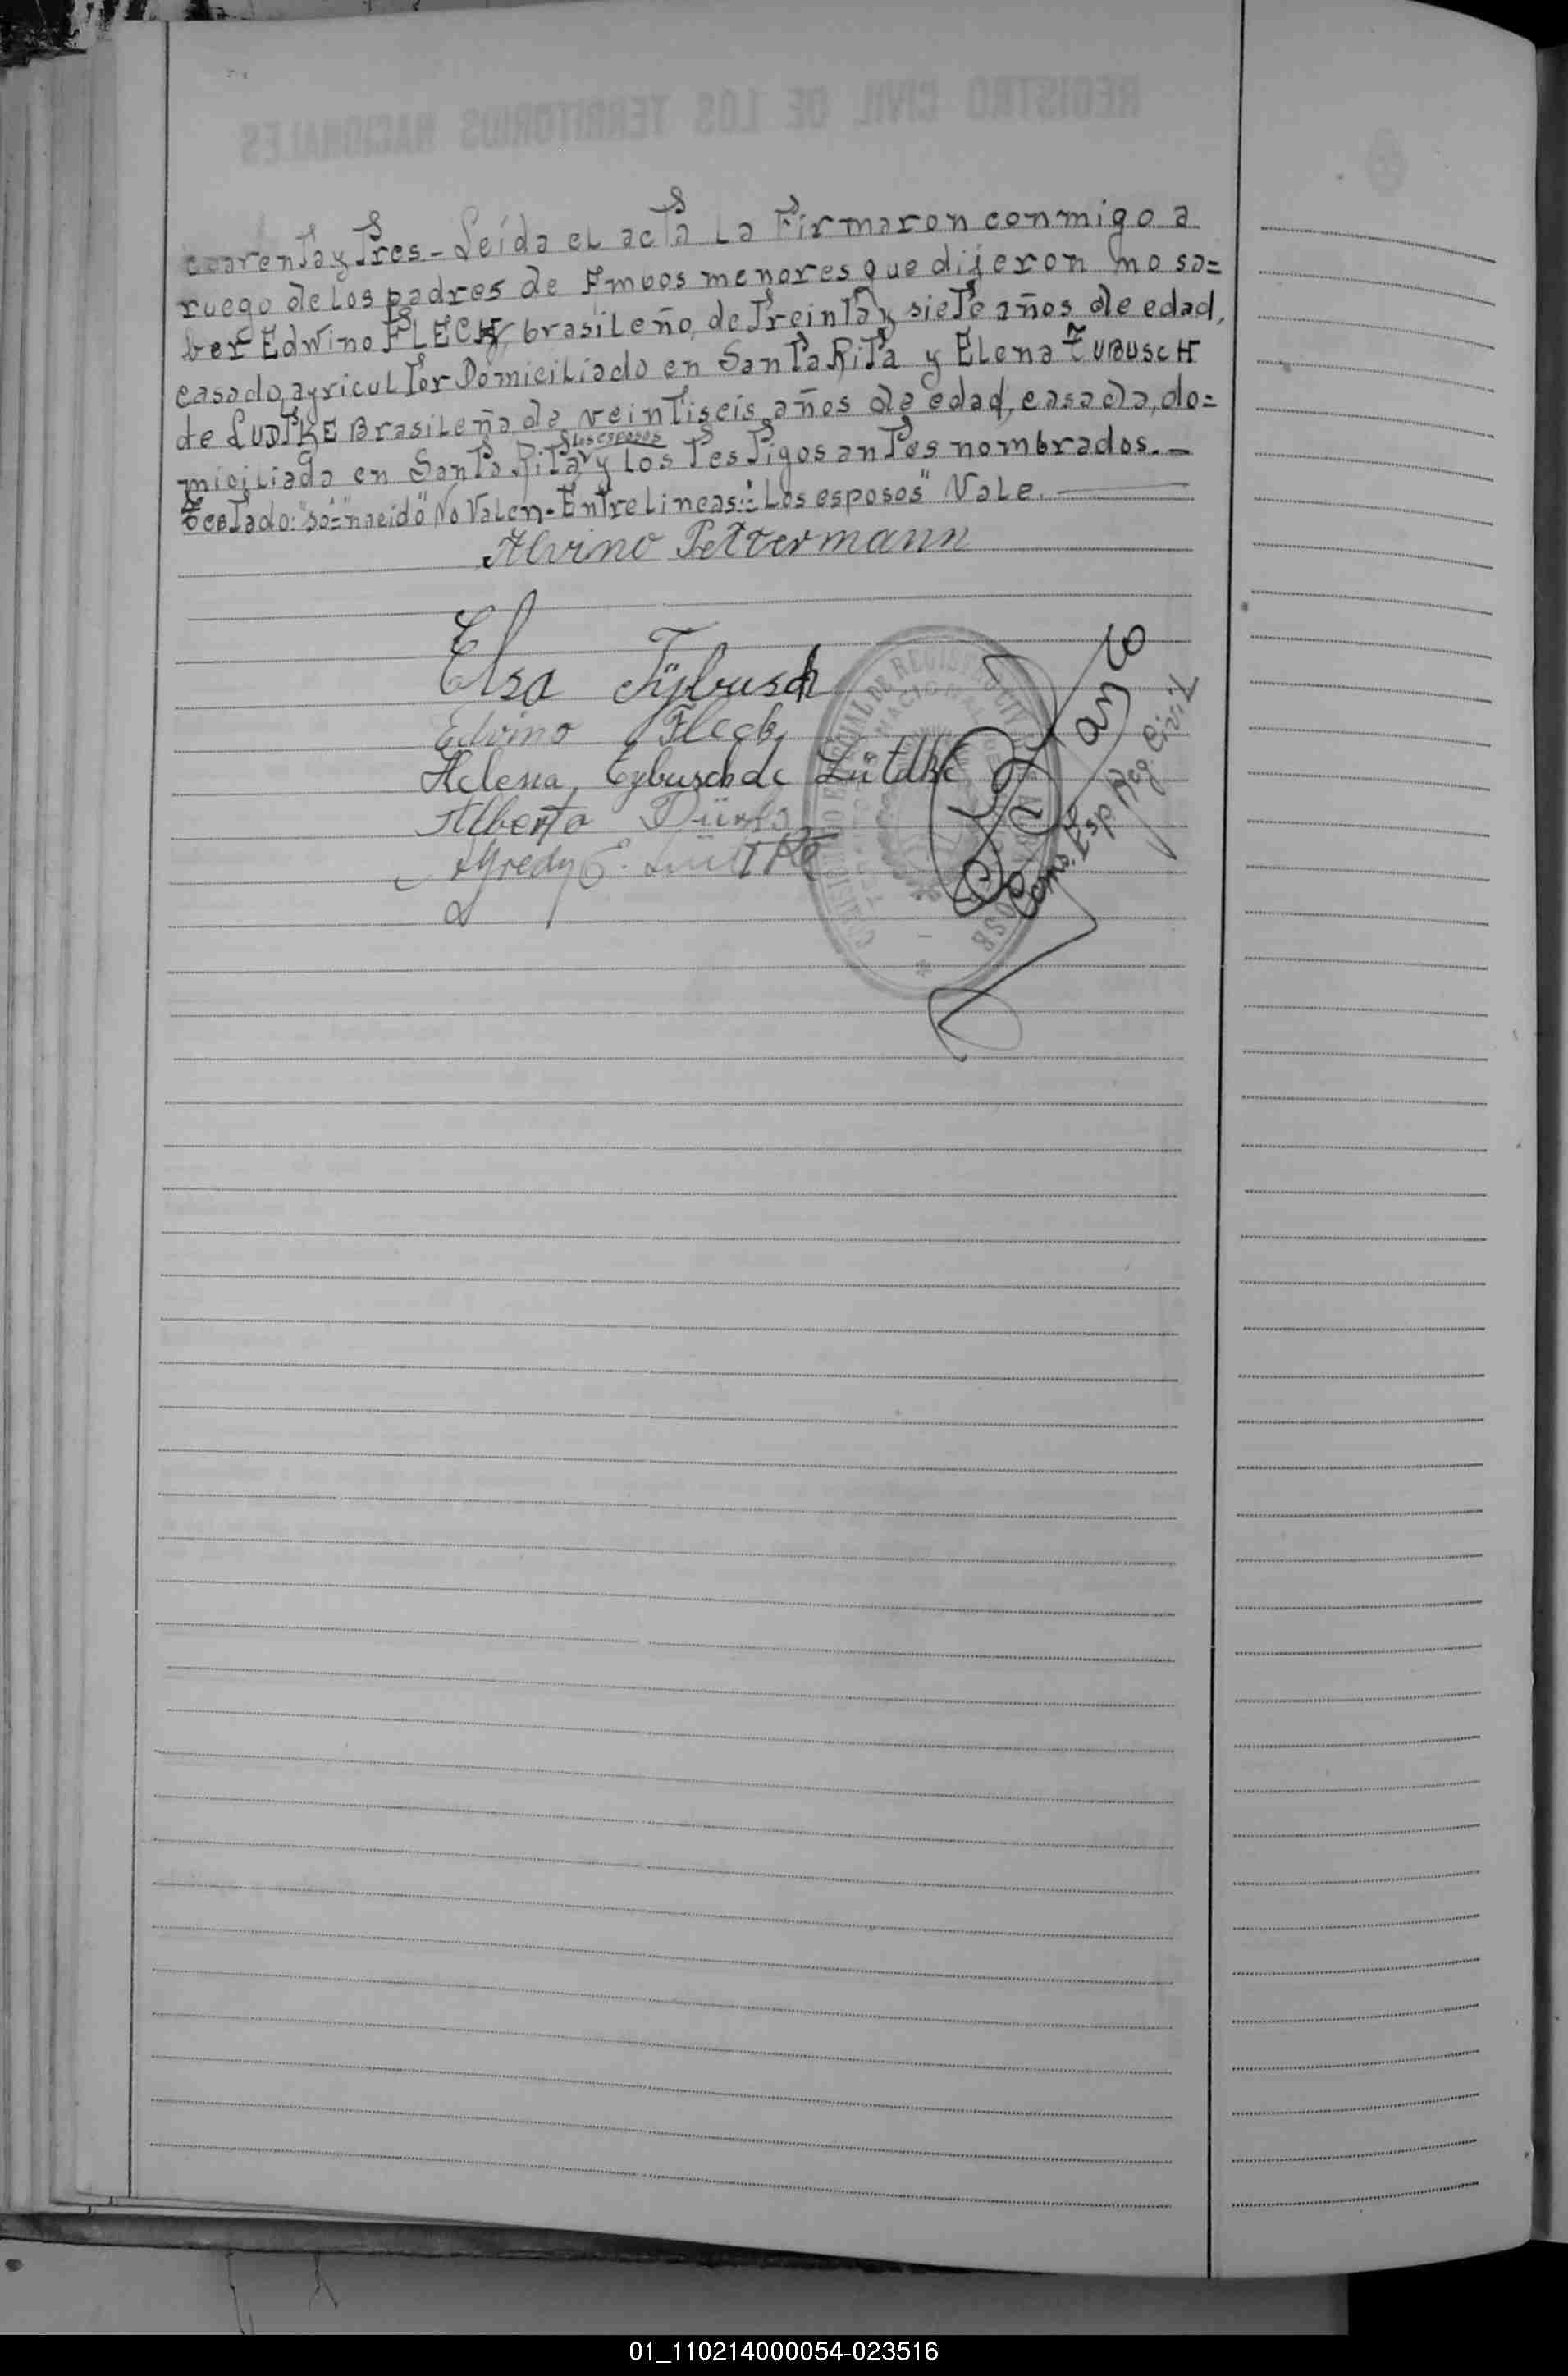 REGISTRO CIVIL DE LOS TERRITORIOS NACIONALES
cuarenta y Tres - Leída el acta La Firmaron conmigo a
ruego de Los padres de Ambos menores que dijeron no sa=
ber Edwino FLECK, brasileño, de Treinta y siete años de edad,
casado, agricultor Domiciliado en Santa Rita y Elena TUBUSCH
de LUDTKE Brasileña de veintiseis años de edad, casada, do=
Los esposos
miciliada en Santa Rita y Los Testigos antes nombrados.-
Testado: "so=nacido" No Valen - Entre lineas: "Los esposos" Vale.
Alvino Pettermann
Elsa Tÿbusch
Edvino Fleck
Helena Tybusch de Lütdke
Alberto
E.
Reg. Civil
01_110214000054-023516